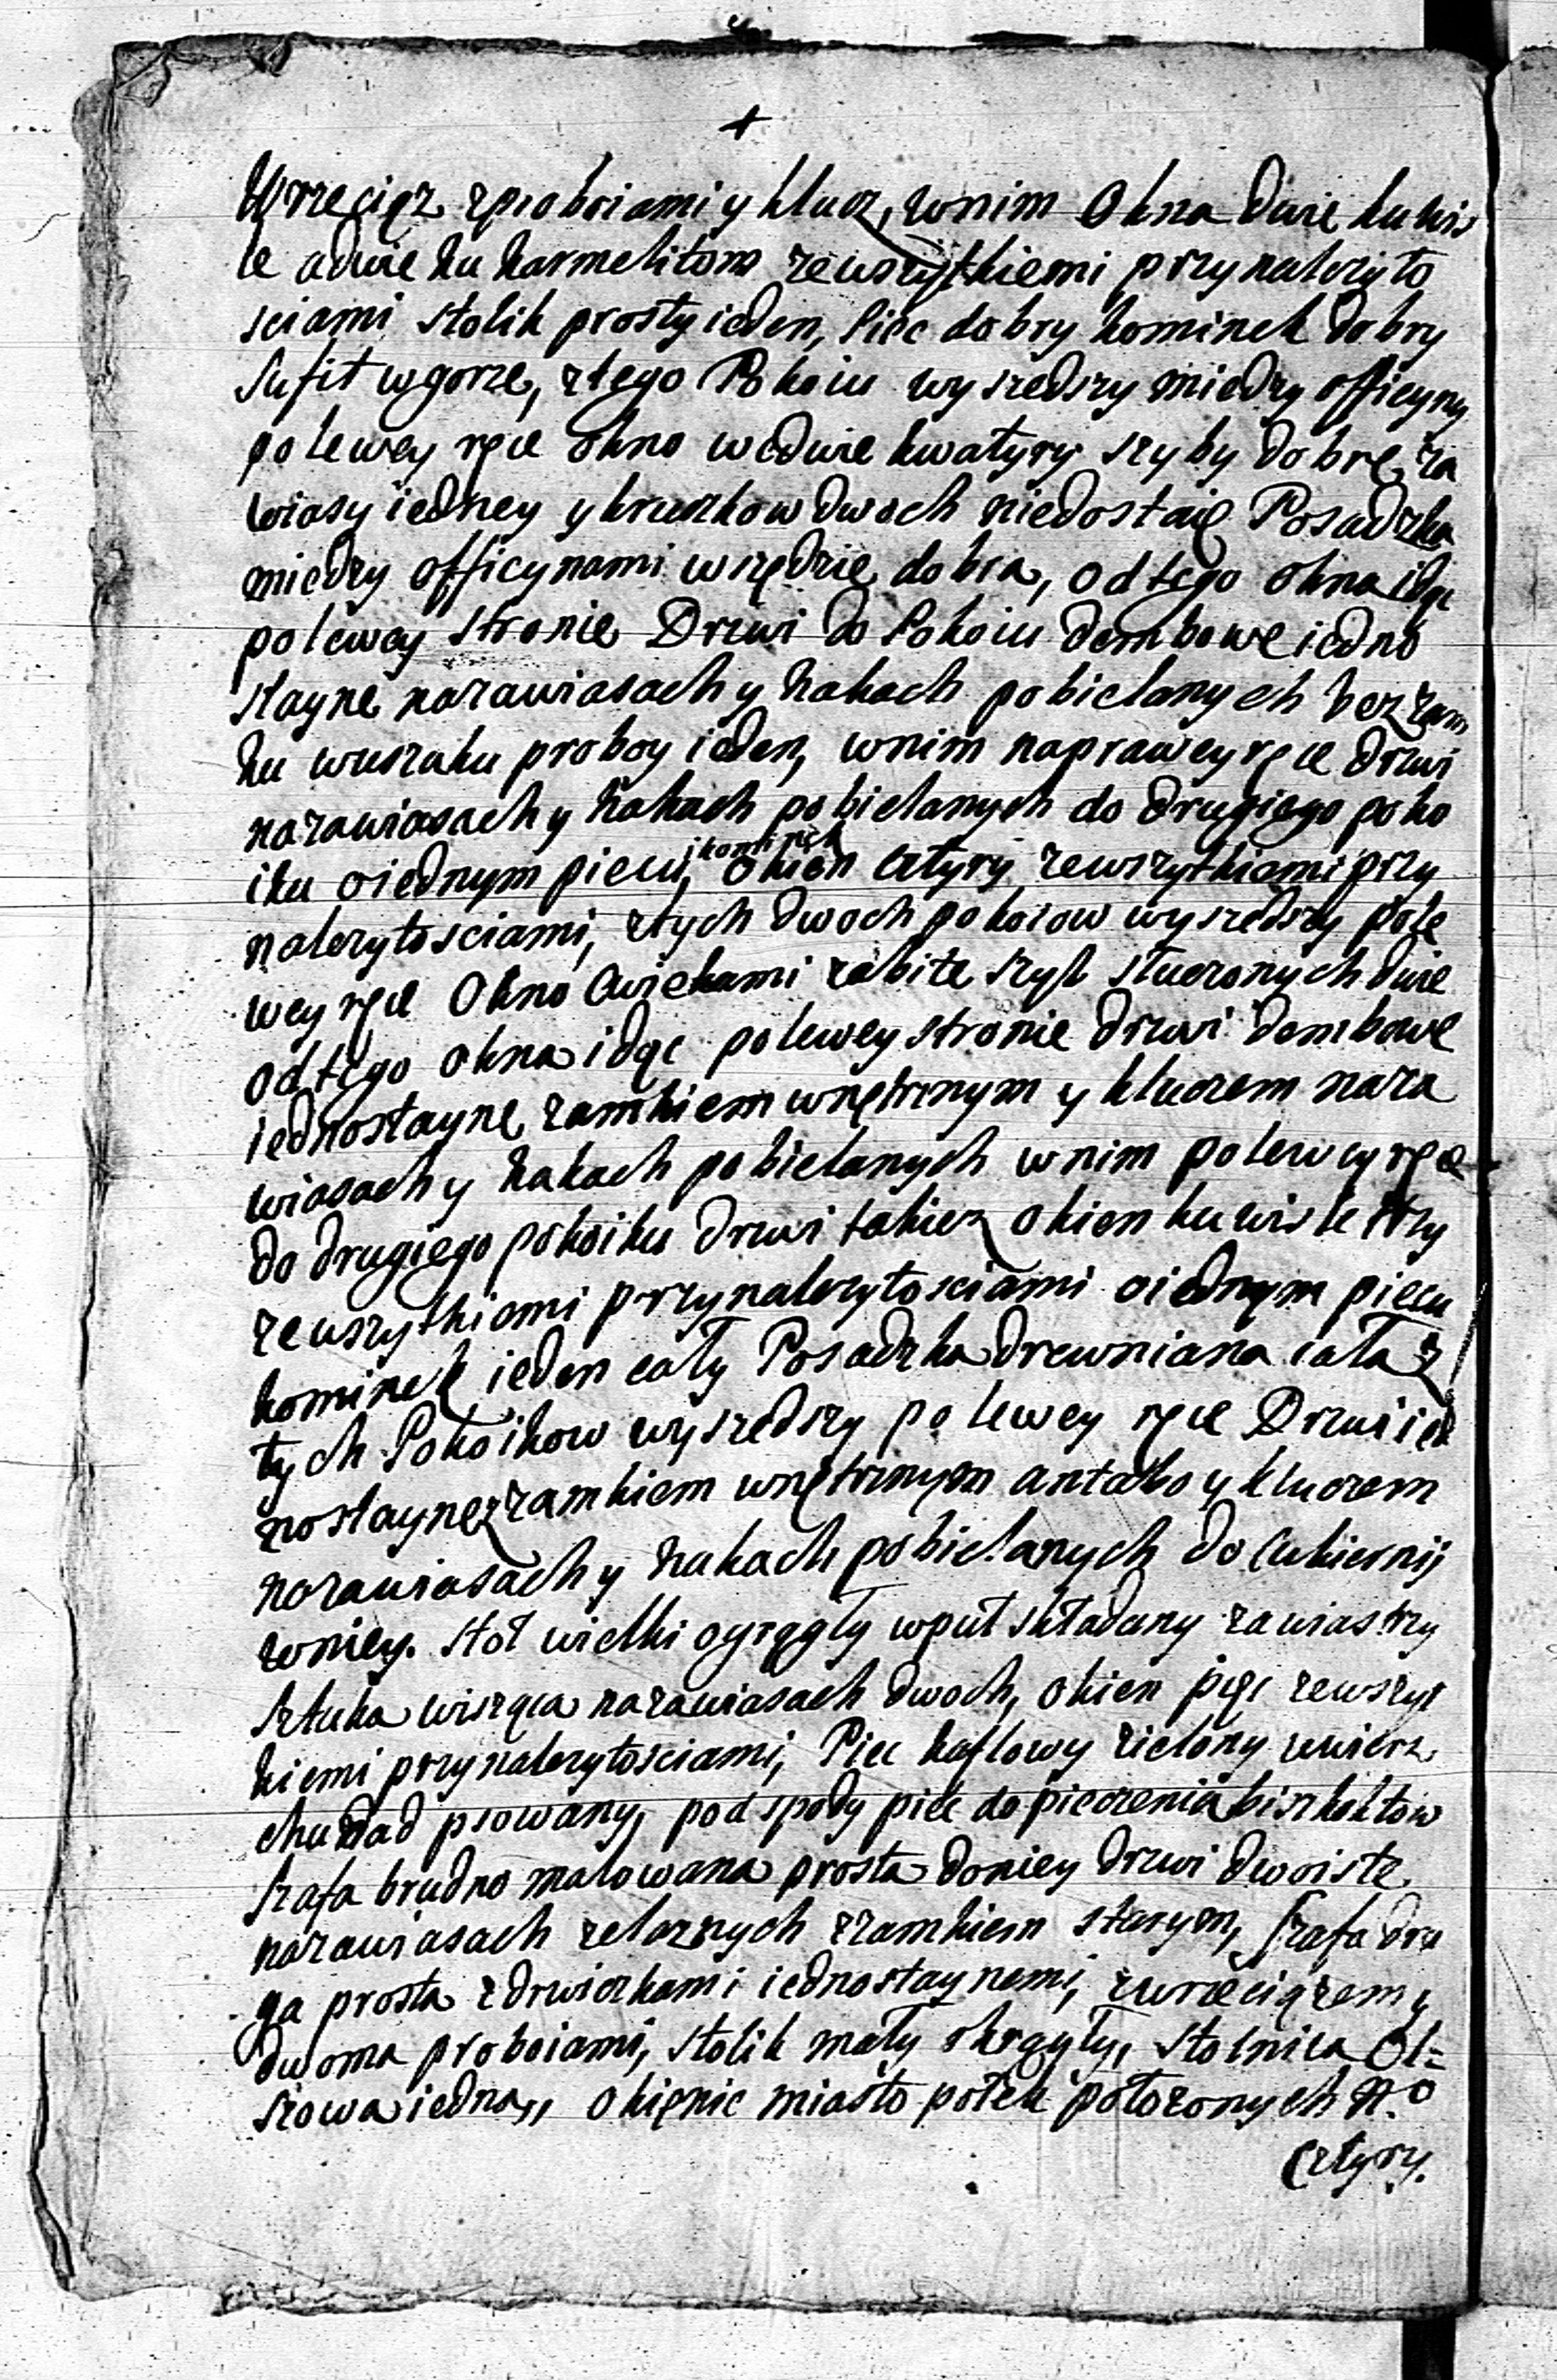 +
Wrzeciąz zproboiami y klucz, wnim Okna dwie ku Wis
le adwie ku karmelitom zewszytkiemi przynalezyto
sciami stolik prosty ieden, Piec dobry kominek dobry
Sufit wgorze, ztego Pokoiu wyszedszy miedzy officyny
polewey ręce okno wedwie kwatyry szyby dobre, za
wiasy iedney y kruczkow dwoch niedostaie Posadzka
miedzy officynami wszędzie dobra, odtego okna idąc
polewey stronie Drzwi do Pokoiu dembowe iedno
stayne nazawiasach y hakach pobielanych bez zam
ku wuszaku proboy ieden, wnim naprawey ręce drzwi
nazawiasach y hakach pobielanych do drugiego poko
iku oiednym piecu, ikominek okien cztyry zewszytkiemi przy
nalezytosciami, ztych dwoch pokoiow wyszedszy pole
wey ręce Okno Cwiekami zabite szyb stuczonych dwie
odtego okna idąc polewey stronie drzwi dembowe
iednostayne zamkiem wnętrznym y kluczem naza
wiasach y hakach pobielanych wnim polewey ręce
do drugiego pokoiku drzwi takiez okien ku wisle trzy
zewszytkiemi przynalezytosciami oiednym piecu
kominek ieden cały Posadzka drewniana cała z
tych Pokoikow wyszedszy polewey ręce Drzwi ied
nostayne zzamkiem wnętrznym antabo y kluczem
nazawiasach y hakach pobielanych do Cukiernij
wniey. Stoł wielki ogrągły wpuł składany zawias trzy
Sztuka wisząca nazawiasach dwoch, okien pięc zewszyt
kiemi przynalezytosciami, Piec kaflowy zielony uwierz
chu nad psowany, pod spody piec do pieczenia biszkoktow
Szafa brudno malowana prosta doniey drzwi dwoiste
nazawiasach zelaznych zzamkiem starym, Szafa dru
ga prosta zdrwiczkami iednostaynemi, zwrzeciązem y
dwoma proboiami, stolik mały okrągły, stolnica Ol=
szowa iedna,, okięnic miasto połek połozonych N.o
Cztyry.